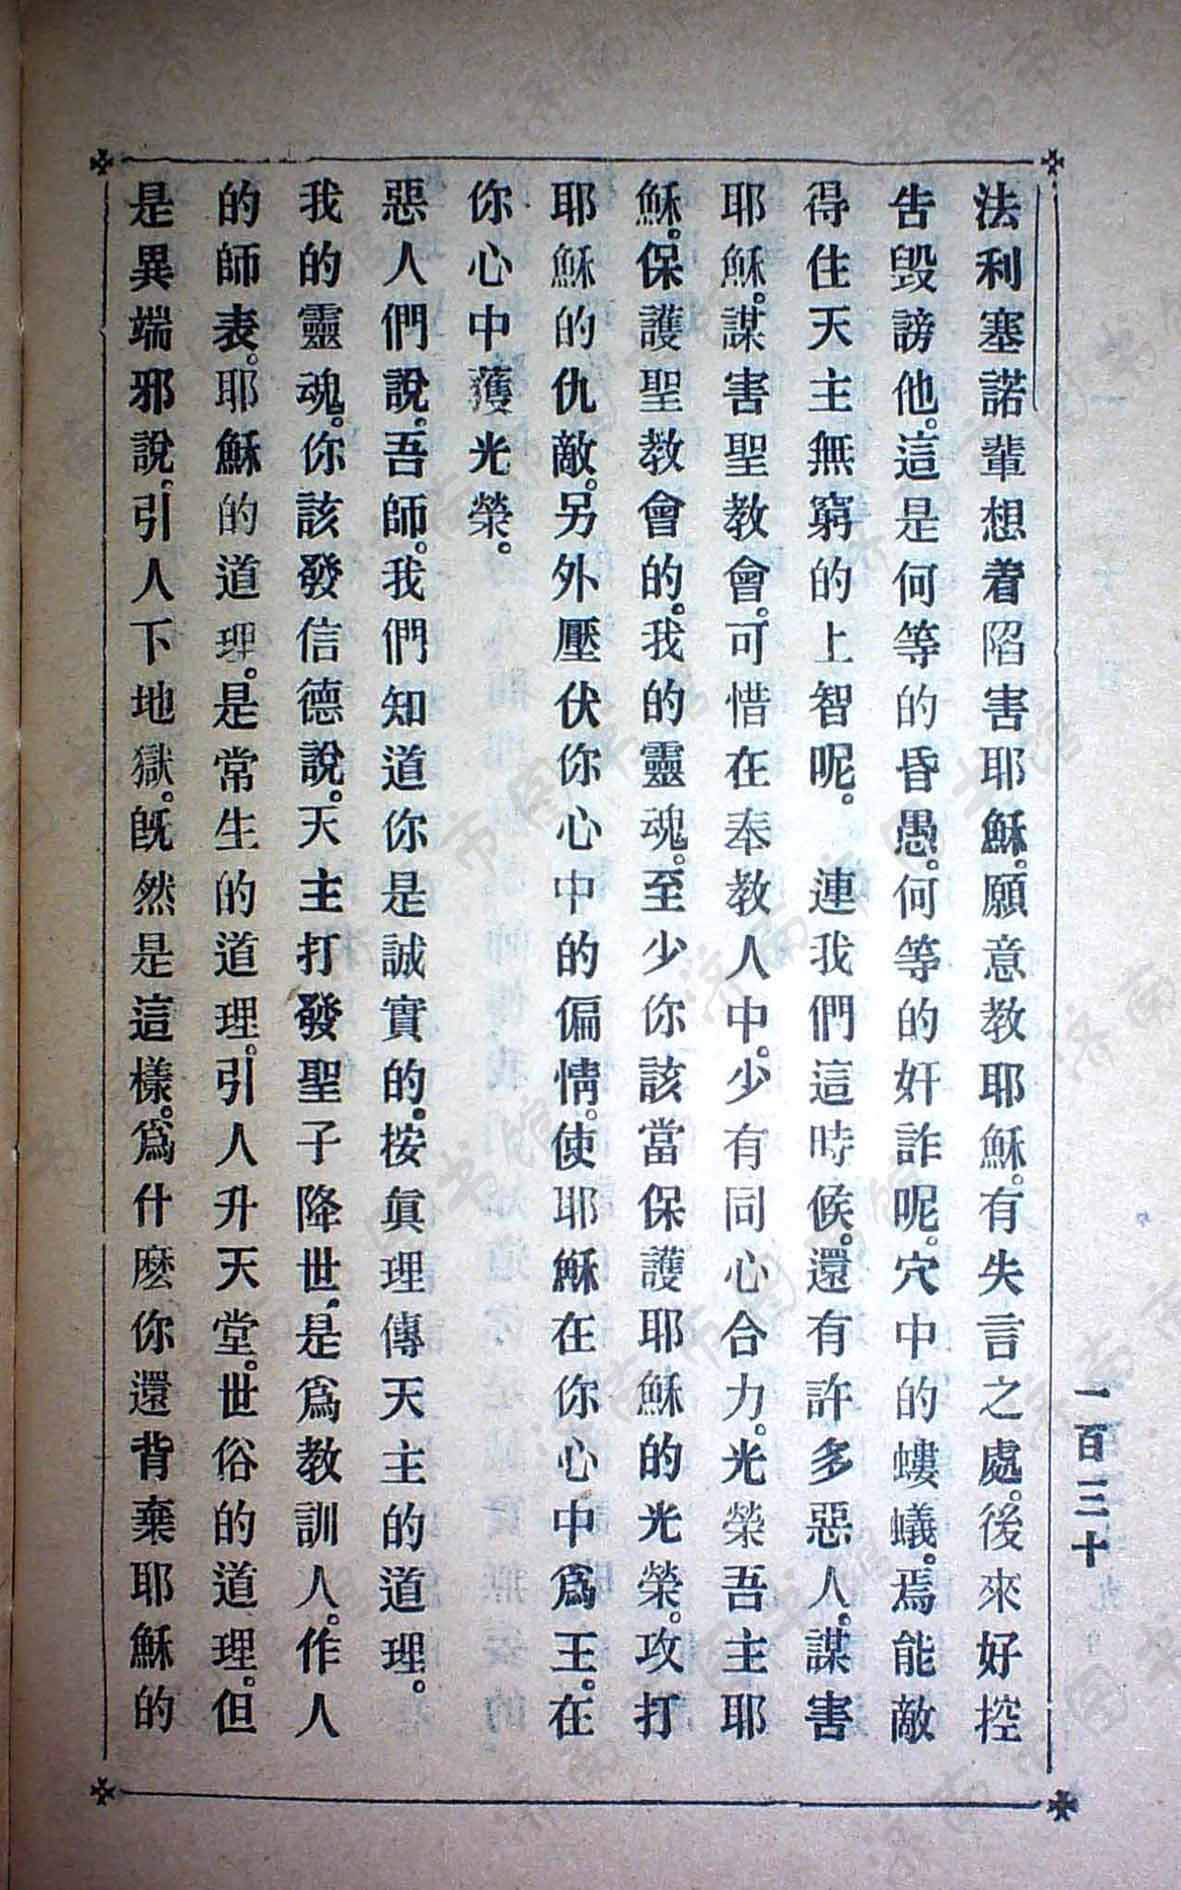 一百三十
法利塞諾輩想着陷害耶穌。願意教耶穌。有失言之處。後來好控
吿毀謗他。這是何等的昏愚。何等的奸詐呢。穴中的螻蟻。焉能敵
得住天主無窮的上智呢。　連我們這時候。還有許多惡人。謀害
耶穌。謀害聖教會。可惜在奉教人中。少有同心合力。光榮吾主耶
穌。保護聖教會的。我的靈魂。至少你該當保護耶穌的光榮。攻打
耶穌的仇敵。另外壓伏你心中的偏情。使耶穌在你心中爲王。在
你心中獲光榮。
惡人們說。吾師。我們知道你是誠實的。按眞理傳天主的道理。
我的靈魂。你該發信德說。天主打發聖子降世。是爲教訓人。作人
的師表。耶穌的道理。是常生的道理。引人升天堂。世俗的道理。但
是異端邪說。引人下地獄。旣然是這樣。爲什麽你還背棄耶穌的